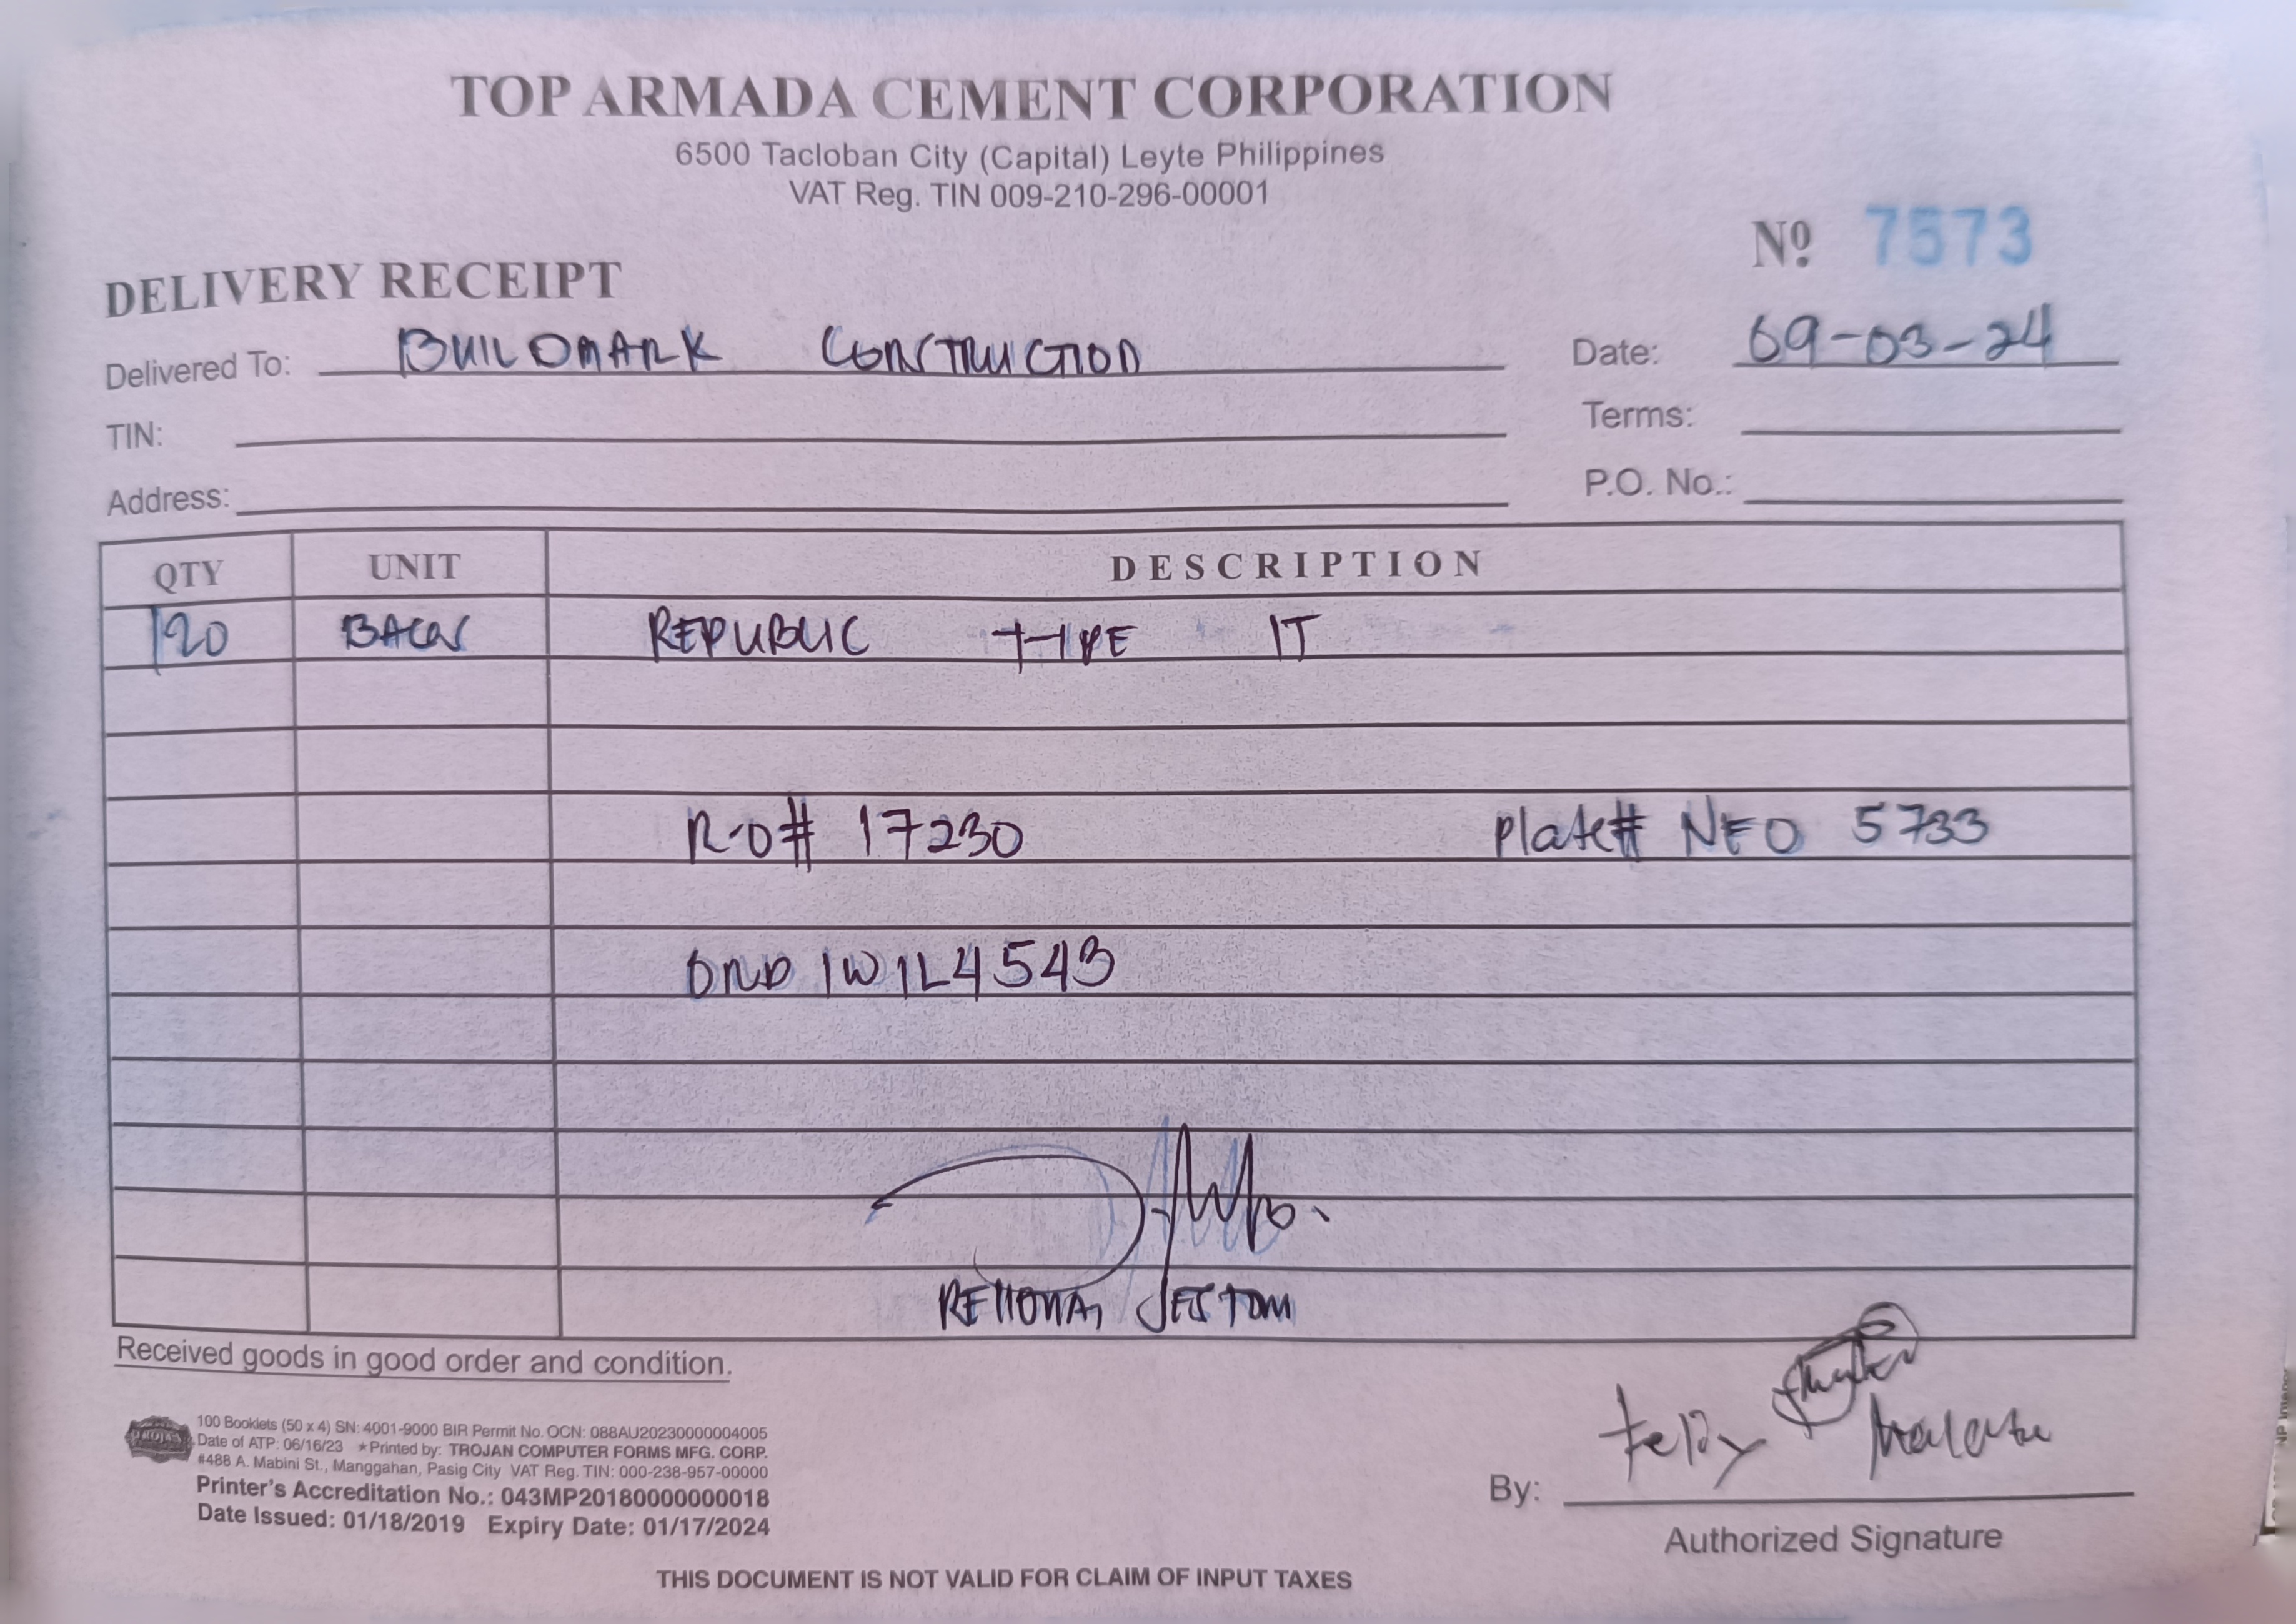 TOP ARMADA CEMENT CORPORATION
6500 Tacloban City (Capital) Leyte Philippines
VAT Reg. TIN 009-210-296-00001
Nº 7573
DELIVERY RECEIPT
Delivered To: BUILDMARK CONSTRUCTION
Date: 09-03-24
TIN:
Terms:
Address:
P.O. No.:
QTY UNIT DESCRIPTION
120 BAGS REPUBLIC TYPE IT
R-O# 17230 Plate# NEO 5733
DND 1W1L4543
Received goods in good order and condition.
100 Booklets (50 x 4) SN: 4001-9000 BIR Permit No. OCN: 088AU20230000004005
Date of ATP: 06/16/23 ★Printed by: TROJAN COMPUTER FORMS MFG. CORP.
#488 A. Mabini St., Manggahan, Pasig City VAT Reg. TIN: 000-238-957-00000
Printer's Accreditation No.: 043MP20180000000018
Date Issued: 01/18/2019 Expiry Date: 01/17/2024
By: Felix
Authorized Signature
THIS DOCUMENT IS NOT VALID FOR CLAIM OF INPUT TAXES